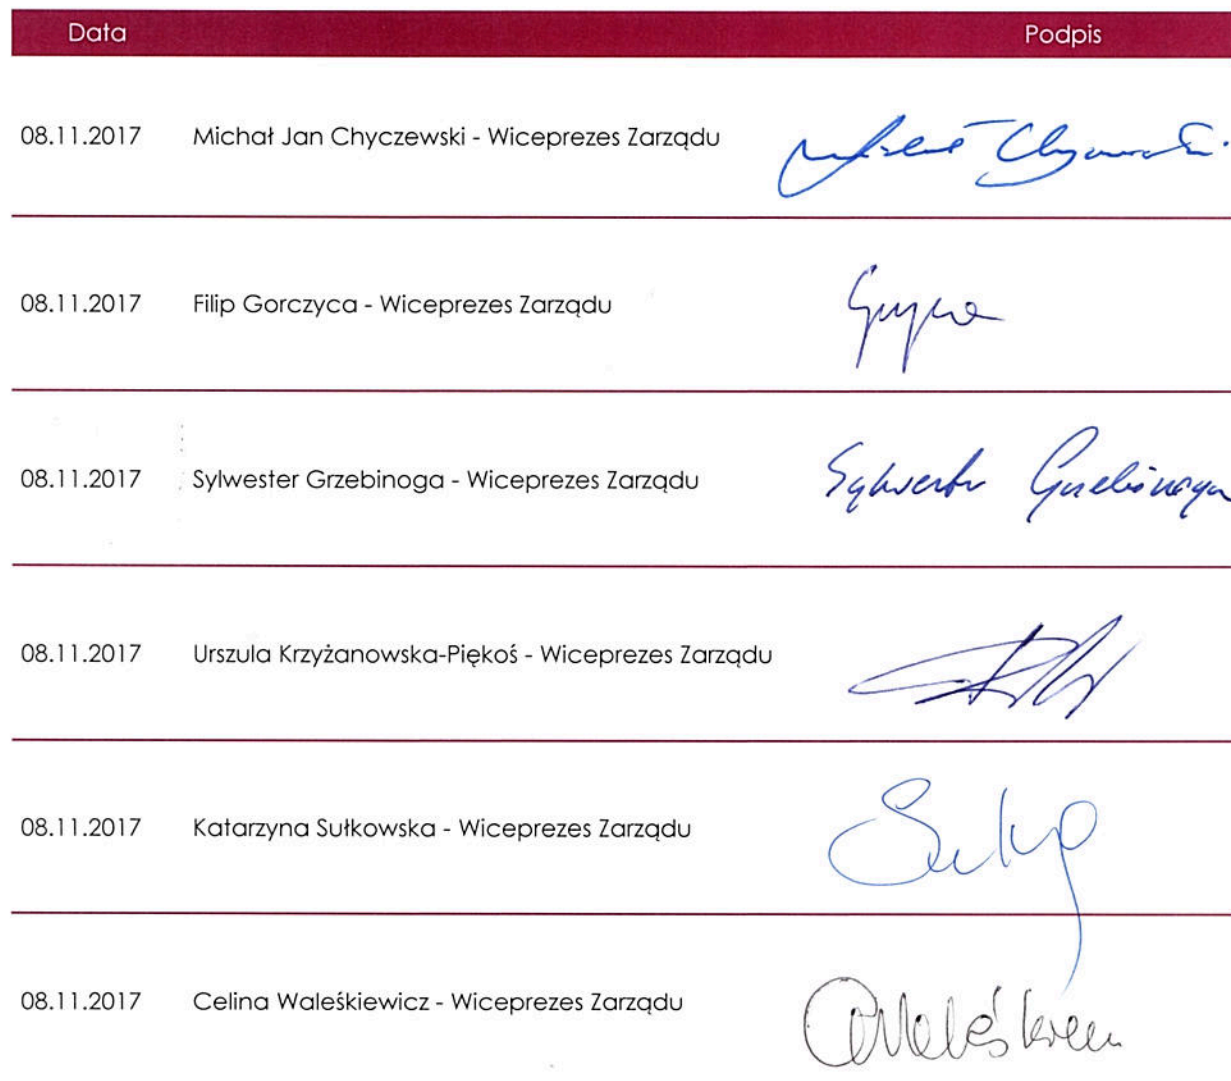 Data Podpis
08.11.2017 Michał Jan Chyczewski - Wiceprezes Zarządu
08.11.2017 Filip Gorczyca - Wiceprezes Zarządu
08.11.2017 Sylwester Grzebinoga - Wiceprezes Zarządu Sylwester Grzebinoga
08.11.2017 Urszula Krzyżanowska-Piękoś - Wiceprezes Zarządu
08.11.2017 Katarzyna Sułkowska - Wiceprezes Zarządu
08.11.2017 Celina Waleśkiewicz - Wiceprezes Zarządu